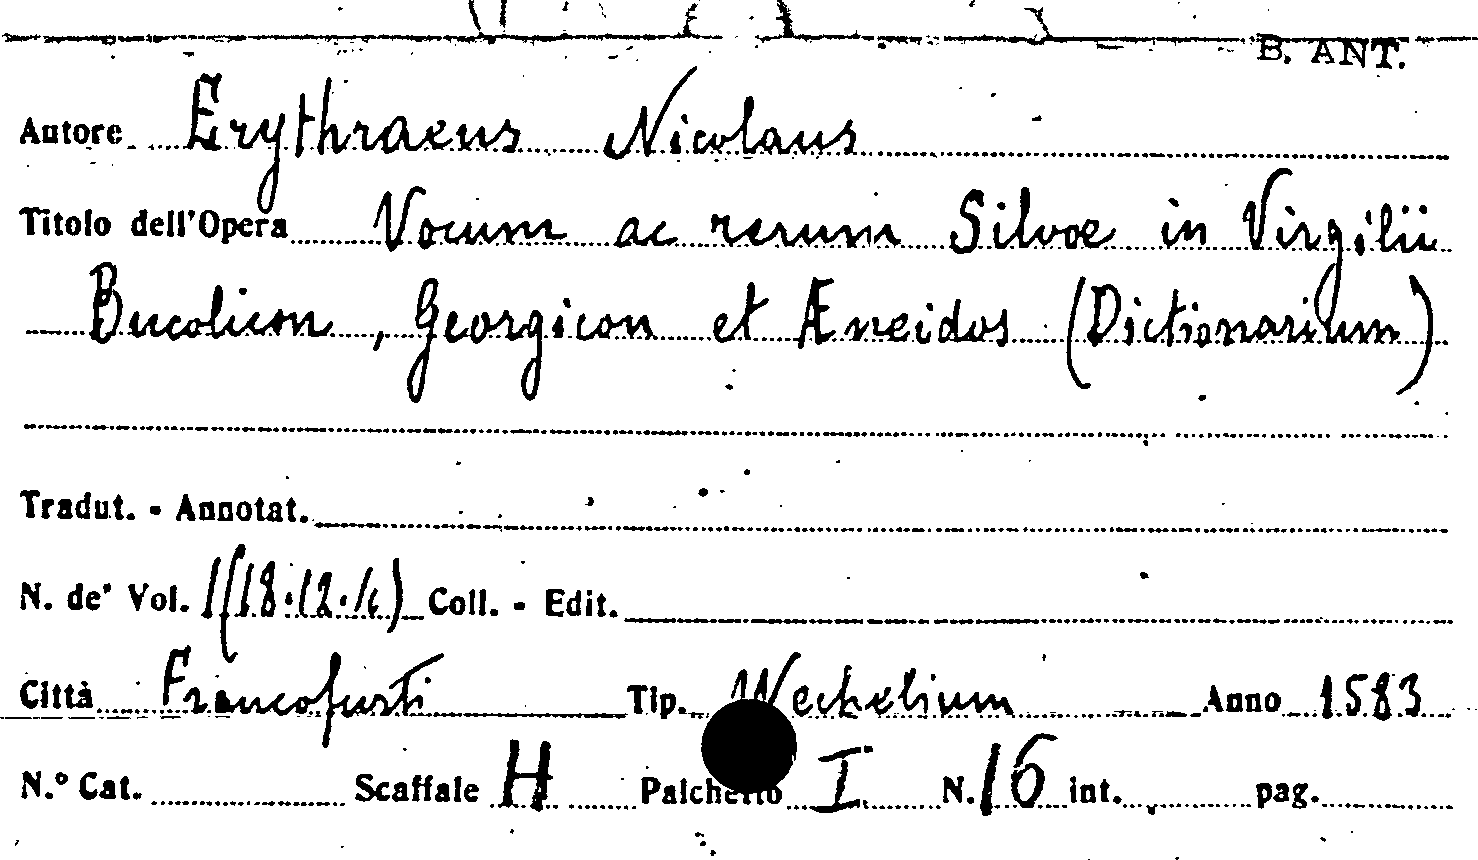 B. ANT.
Autore Erythraeus Nicolaus
Titolo dell'Opera Vocum ac rerum Silvae in Virgilii
Bucolicon, Georgicon et Æneidos (Dictionarium)
Tradut. - Annotat.
N. de' Vol. 1(18.12.4) Coll. - Edit.
Città Francofurti Tip. Wechelium Anno 1583
N.° Cat. Scaffale H Palchetto I N. 16 int. pag.